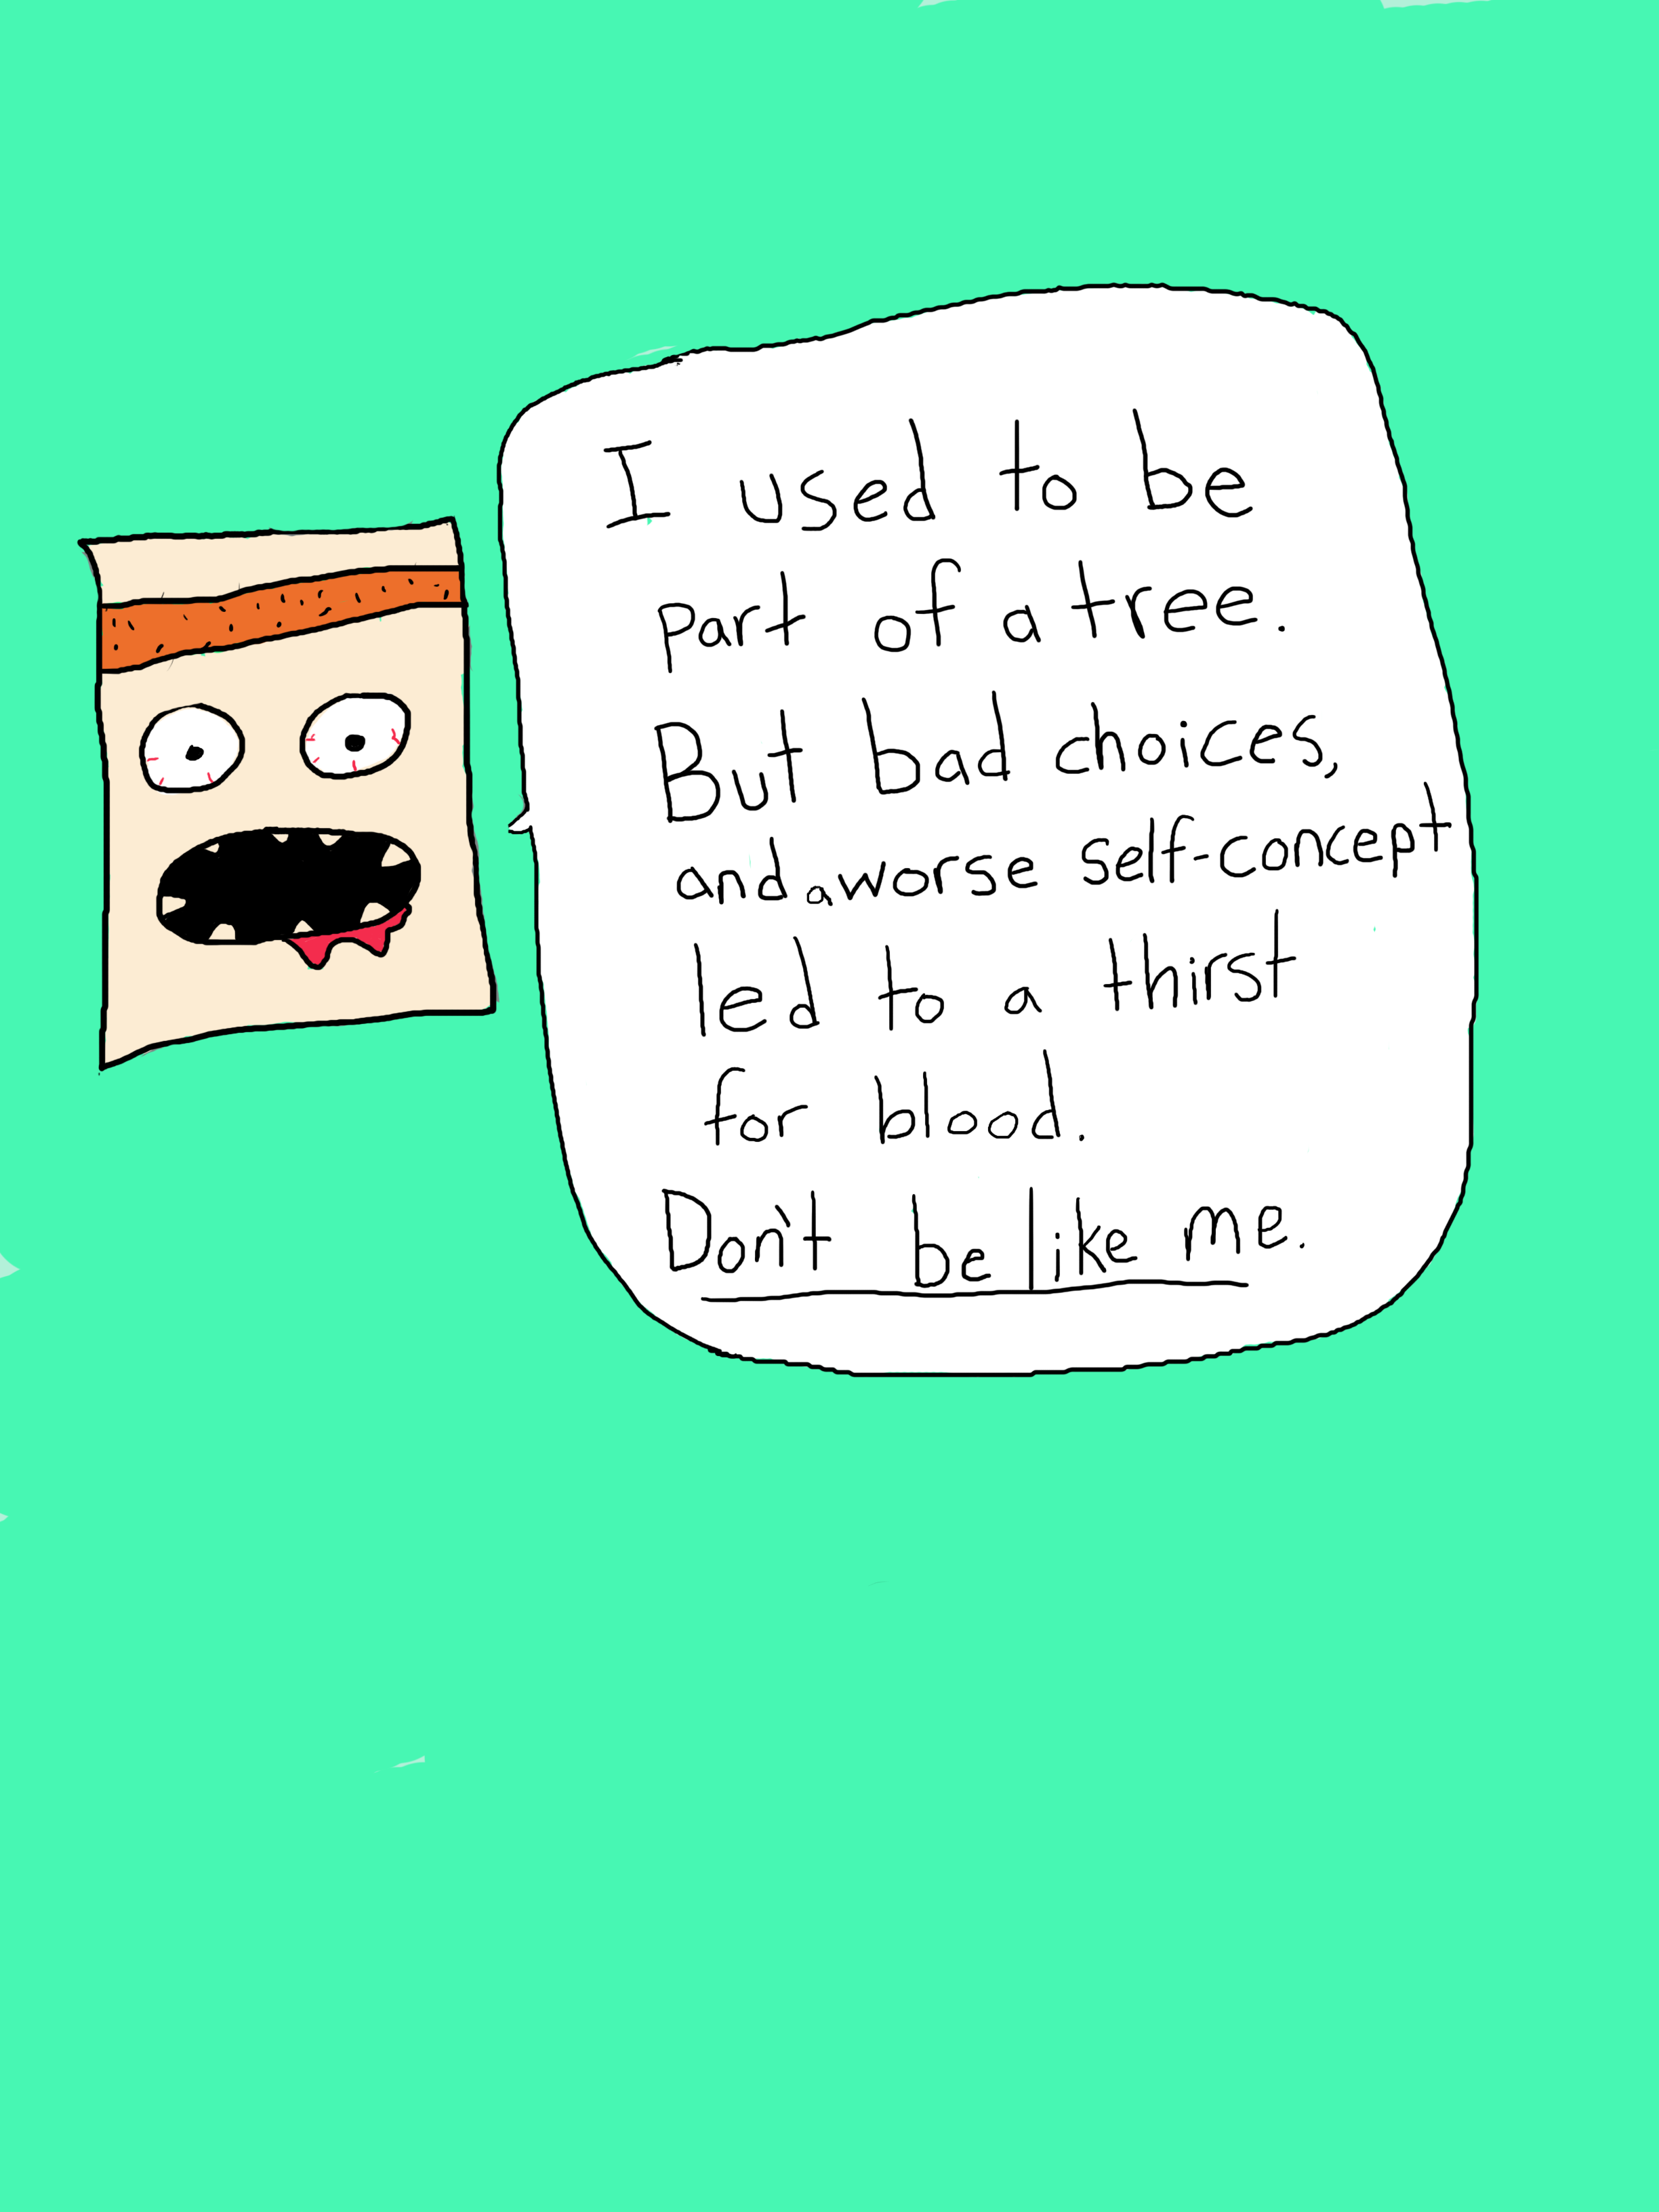 I used to be
part of a tree.
But bad choices,
and a worse self-concept
led to a thirst
for blood.
Don't be like me.